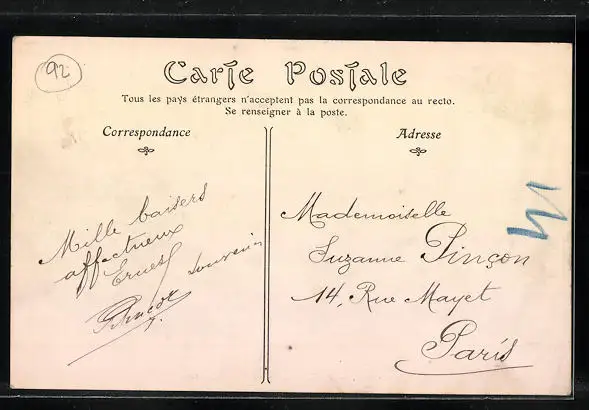 92
Carte Postale
Tous les pays étrangers n'acceptent pas la correspondance au recto.
Se renseigner à la poste.
Correspondance
Adresse
Mille baisers
affectueux
Ernest souvenir
Mademoiselle
Suzanne Pinçon
14, Rue Mayet
Paris